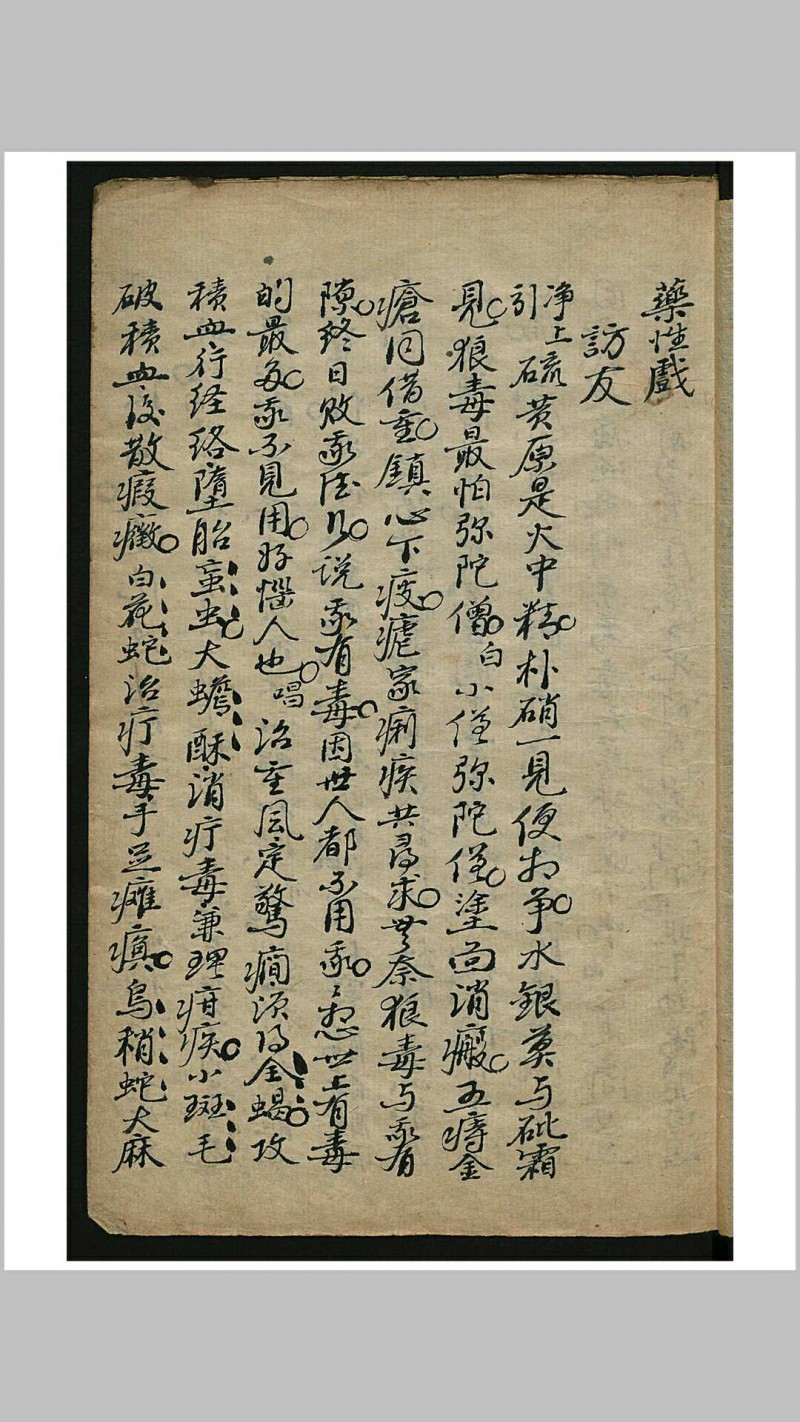 藥性戲
訪友
净上引硫黄原是火中精朴硝一見便相争水銀莫与砒霜
見狼毒最怕弥陀僧白小僧弥陀僧塗面消瘢五痔金
瘡同借重鎮心下痰瘧家痢疾共尋求無奈狼毒与我有
隙終日敗我德行说我有毒因世人都不用我我想世上有毒
的最多我不見用好惱人也唱治重風定驚癇须得全蝎攻
積血行经络墮胎䖟虫大蟾酥消疔毒兼理疳疾小斑毛
破積血㽲散瘕癥白花蛇治疔毒手足癱瘓烏稍蛇大麻